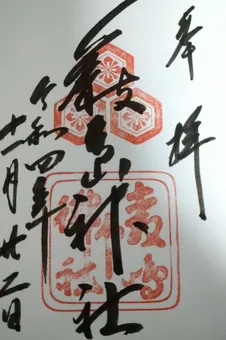 奉拝
厳島神社
令和四年
十一月廿二日
嚴島神社